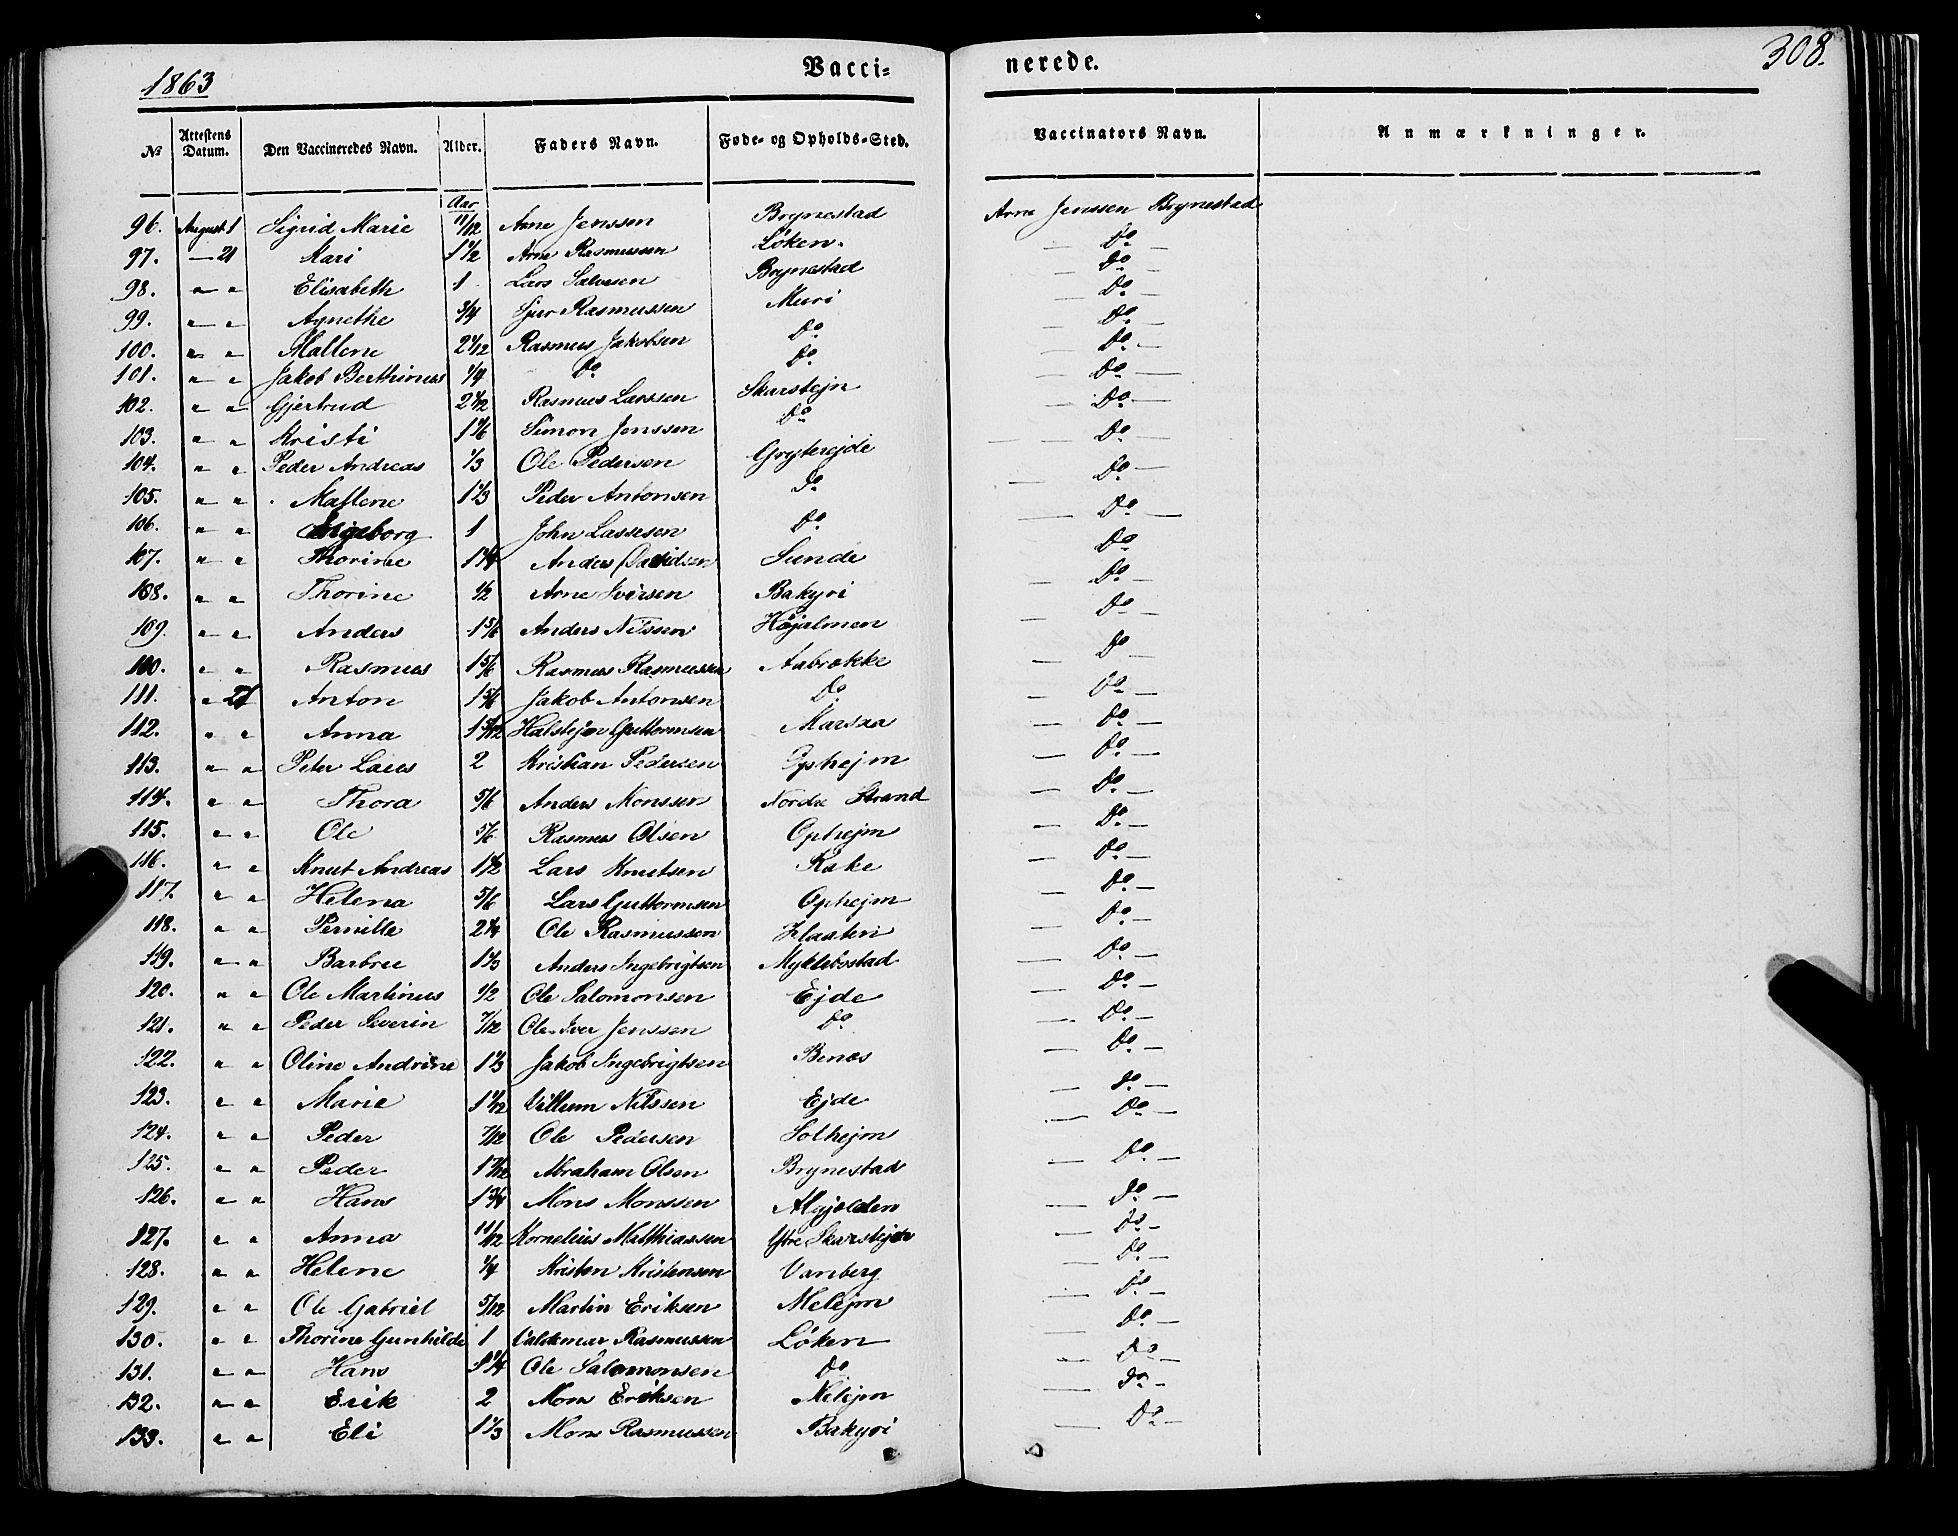 1863
Vacci-
nerede.
308.
№ Attestens Datum. Den Vaccineredes Navn. Alder. Faders Navn. Føde- og Opholds-Sted. Vaccinators Navn. Anmærkninger.
Aar
96. August 1 Sigrid Marie 11/12 Arne Jenssen Brynestad Arne Jenssen Brynestad
97. — 21 Mari 1 1/2 Arne Rasmussen Løken. — Do —
98. " " Elisabeth 1 Lars Salvesen Brynestad — Do —
99. " " Agnethe 3/4 Sjur Rasmussen Muri — Do —
100. " " Mallene 2 1/12 Rasmus Jakobsen Do — Do —
101. " " Jakob Berthinus 1/4 Do Do — Do —
102. " " Gjertrud Rasmus Larssen Skarstejn — Do —
103. " " Kristi 1 1/6 Simon Jenssen Do — Do —
104. " " Peder Andreas 1/3 Ole Pedersen Gryterejde — Do —
105. " " Mallene 1 1/3 Peder Antonsen Do — Do —
106. " " Ingeborg 1 John Lassesen Do — Do —
107. " " Thorine 1 1/4 Anders Davidsen Sunde — Do
108. " " Thorine 1/2 Arne Iversen Bakyri — Do —
109. " " Anders 1 5/6 Anders Nilssen Højalmen — Do —
110. " " Rasmus 1 5/6 Rasmus Rasmussen Aabrekke — Do —
111. " 21 Anton 1 5/6 Jakob Antonsen Do — Do —
112. " " Anna 1 5/12 Halstejn Guttormsen Marsaa — Do —
113. " " Peter Laus 2 Kristian Pedersen Ophejm — Do —
114. " " Thora 5/6 Anders Monssen Nordre Strand — Do —
115. " " Ole 5/6 Rasmus Olsen Ophejm — Do —
116. " " Knut Andreas 1 1/2 Lars Knutsen Kake — Do —
117. " " Helena 5/6 Lars Guttormsen Ophejm — Do —
118. " " Pernille 2 1/4 Ole Rasmussen Flaaten — Do —
119. " " Barbru 1 1/3 Anders Ingebrigtsen Myklebostad — Do —
120. " " Ole Martinus 1/2 Ole Salomonsen Ejde — Do —
121. " " Peder Severin 7/12 Ole Iver Jenssen Do — Do —
122. " " Oline Andrine 1 1/3 Jakob Ingebrigtsen Benæs — Do —
123. " " Marie 1 1/12 Villum Nilssen Ejde — Do —
124. " " Peder 7/12 Ole Pedersen Solhejm — Do —
125. " " Peder Abraham Olsen Brynestad — Do —
126. " " Hans 1 3/4 Mons Monssen — Do —
127. " " Anna 11/12 Kornelius Matthiassen Ytre Skarstejn — Do —
128. " " Helene 1/4 Kristen Kristensen Vanberg — Do —
129. " " Ole Gabriel 5/12 Martin Eriksen Melejm — Do —
130. " " Thorine Gunhilde 1 Valdemar Rasmussen Løken — Do —
131. " " Hans 1 1/4 Ole Salomonsen Do — Do —
132. " " Erik 2 Mons Eriksen — Do —
133. " " Eli 1 1/3 Mons Rasmussen Bakyri — Do —